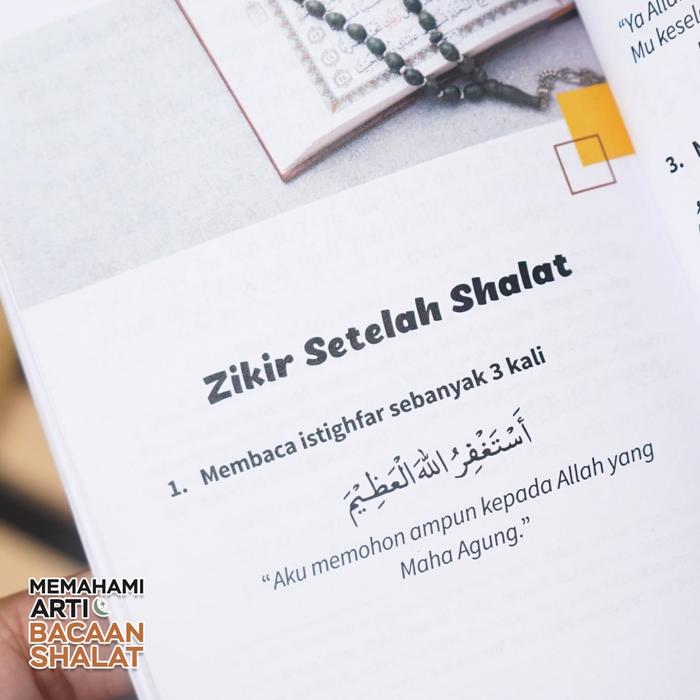 Zikir Setelah Shalat
1. Membaca istighfar sebanyak 3 kali
أَسْتَغْفِرُ اللهَ الْعَظِيْمَ
“Aku memohon ampun kepada Allah yang
Maha Agung.”
“Ya Allah
Mu
3.
MEMAHAMI
ARTI
BACAAN
SHALAT